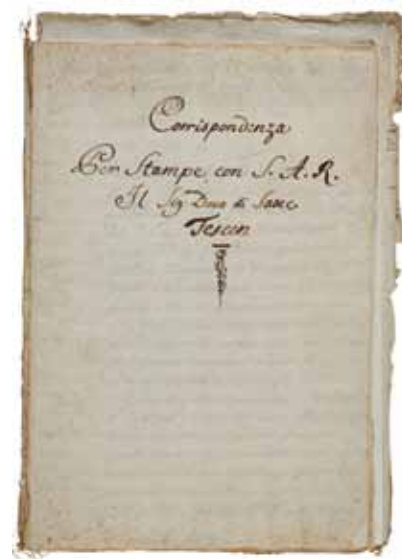 Corrispondenza
Per Stampe con S. A. R.
Il Sig Duca di Saxe
Tescen